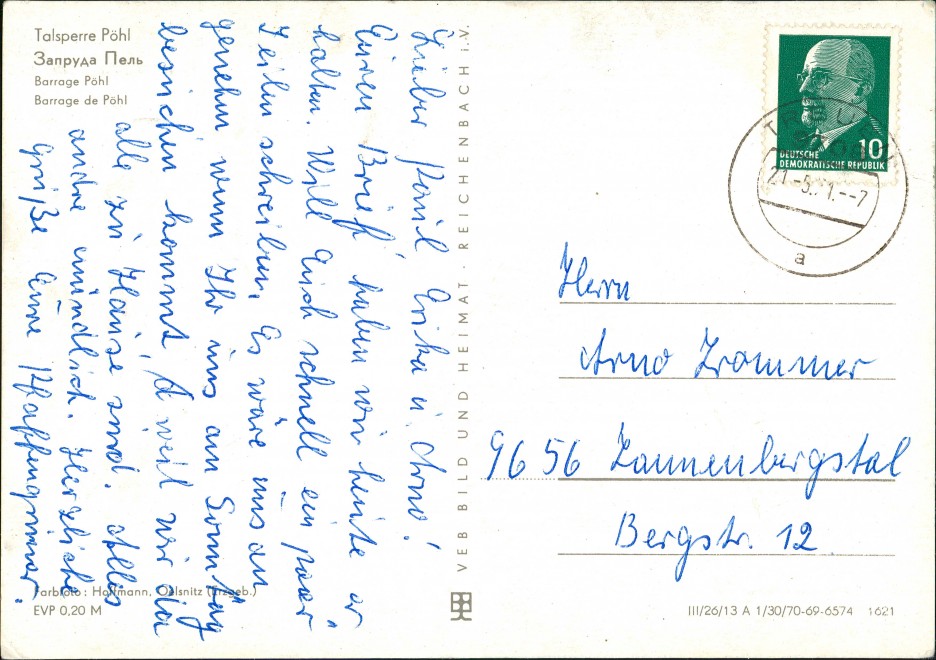 Talsperre Pöhl
Запруда Пель
Barrage Pöhl
Barrage de Pöhl
Lieber Paul Erika u. Arno!
Euren Brief haben wir heute er
halten. Will Euch schnell ein paar
Zeilen schreiben. Es wäre uns an
genehm wenn Ihr uns am Sonntag
besuchen kommt, weil wir da
alle zu Hause sind. Alles
andre mündlich. Herzliche
Grüße Eure
VEB BILD UND HEIMAT · REICHENBACH i. V.
DEUTSCHE
DEMOKRATISCHE REPUBLIK
10
21.-5. 1.--7
a
Herrn
Arno
9656 Tannenbergstal
Bergstr. 12
Farbfoto: Hoffmann, Oelsnitz (Erzgeb.)
EVP 0,20 M
III/26/13 A 1/30/70-69-6574 1621